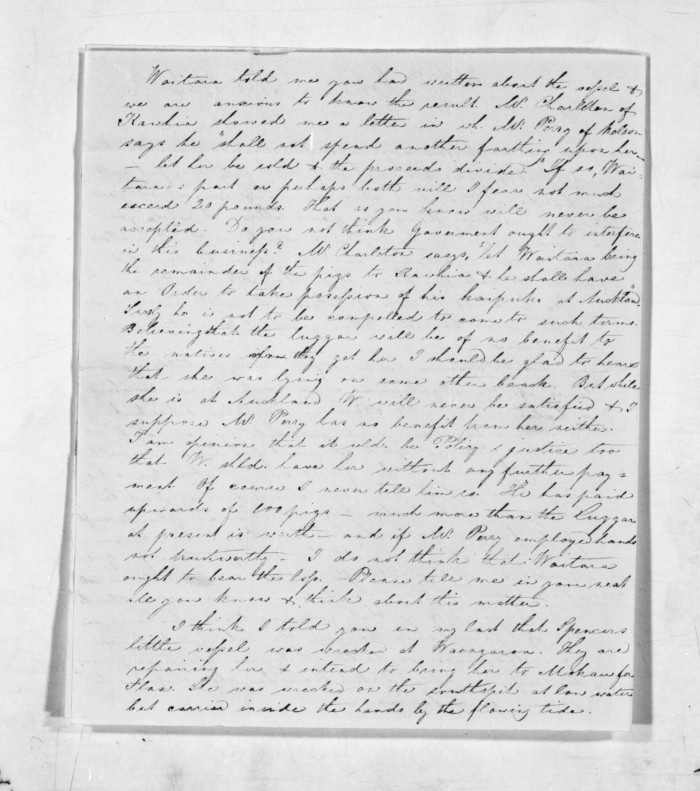 Waitara told me you had written about the vessel &
we are anxious to know the result. Mr. Charlton of
Kawhia showed me a letter in wh. Mr. Perry of Nelson
says he "shall not spend another farthing upon her
– let her be sold & the proceeds divide." If so, Wai-
tara's part or perhaps both will I fear not much
exceed 20 pounds. That as you know will never be
accepted. Do you not think Goverment ought to interfere
in this business? Mr. Charleton says, "let Waitara bring
the remainder of the pigs to Kawhia & he shall have
an Order to take possession of his kaipuke at Auckland."
Surely he is not to be compelled to come to such terms.
Believing that the luggar will be of no benefit to
the natives when they get her I should be glad to hear
that she was lying on some other beach. But while
she is at Auckland W. will never be satisfied & I
suppose Mr. Perry has no benefit from her neither.
I am opinion that it wld. be Policy & justice too
that W. shld. have her without any further pay=
ment. Of course I never tell him so. He has paid
upwards of 100 pigs – much more than the Luggar
at present is worth – and if Mr. Perry employed hands
not trustworthy – I do not think that Waitara
ought to bear the loss. Please tell me in your next
all you know & think about this matter.
I think I told you in my last that Spencers
little vessel was wrecked at Waingaroa. They are
repairing her & intend to bring her to Mokau for
Flax. She was wrecked on the southspit at low water
but carried inside the heads by the flowing tide.